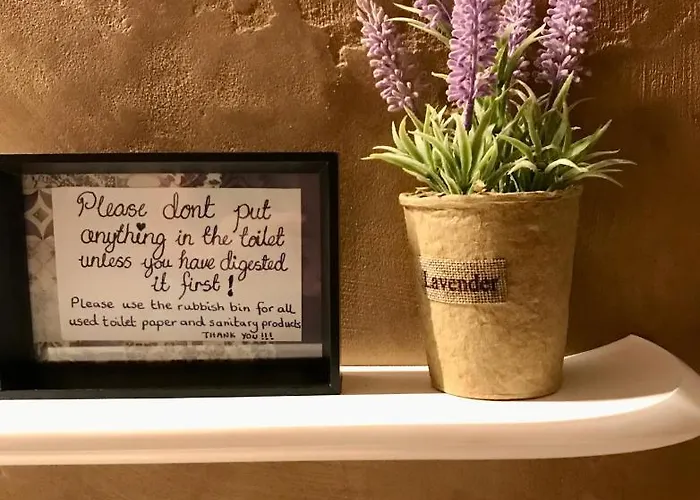 Please dont put
anything in the toilet
unless you have digested
it first!
Please use the rubbish bin for all
used toilet paper and sanitary products
THANK YOU!!!
Lavender